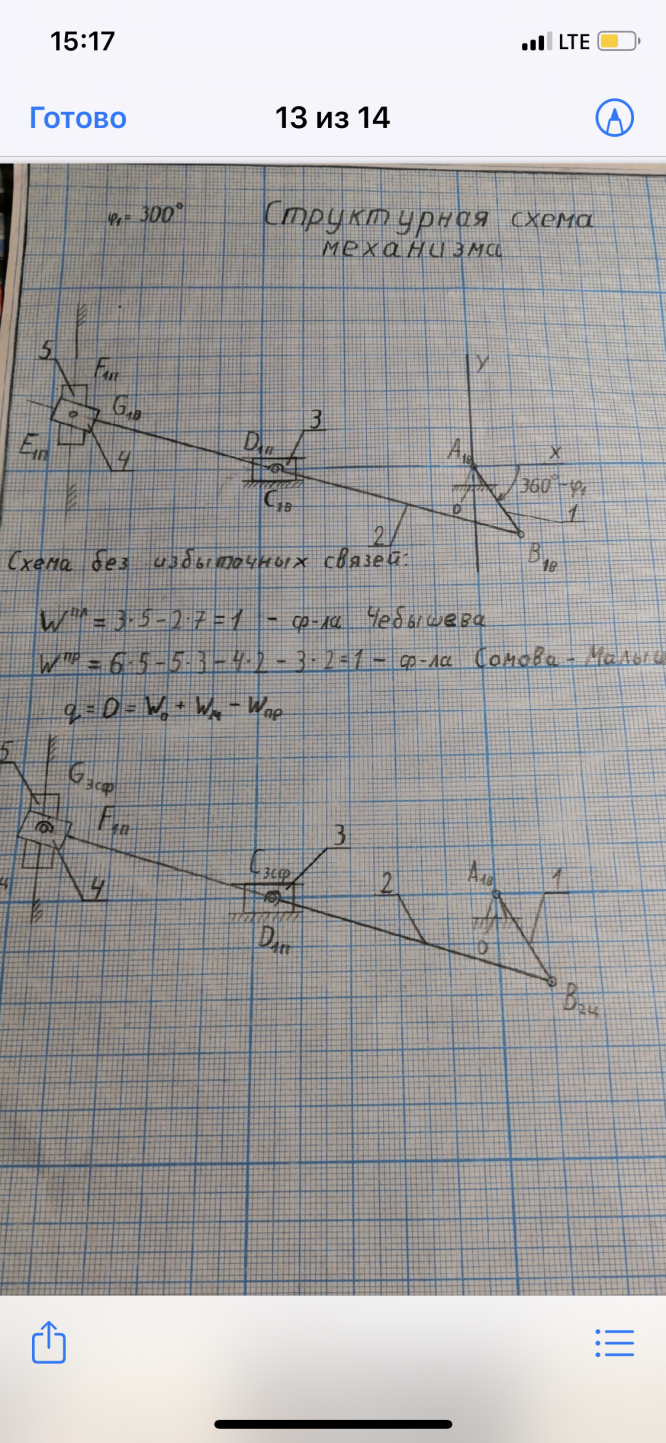 15:17
LTE
Готово
13 из 14
φ₁= 300°
Структурная схема
механизма
5
F₁ₙ
G₁в
E₁ₙ
4
D₁ₙ
3
C₁в
2
y
A₁в
x
360°-φ₁
0
1
B₁в
Схема без избыточных связей:
Wᵖˡ = 3·5-2·7=1 - ф-ла Чебышева
Wᵖᵖ = 6·5-5·3-4·2-3·2=1 - ф-ла Сомова-Малыш
q = D = W₀ + Wм - Wпр
5
G₃сф
F₁ₙ
4
C₃сф
3
D₁ₙ
2
A₁в
1
0
B₂ц